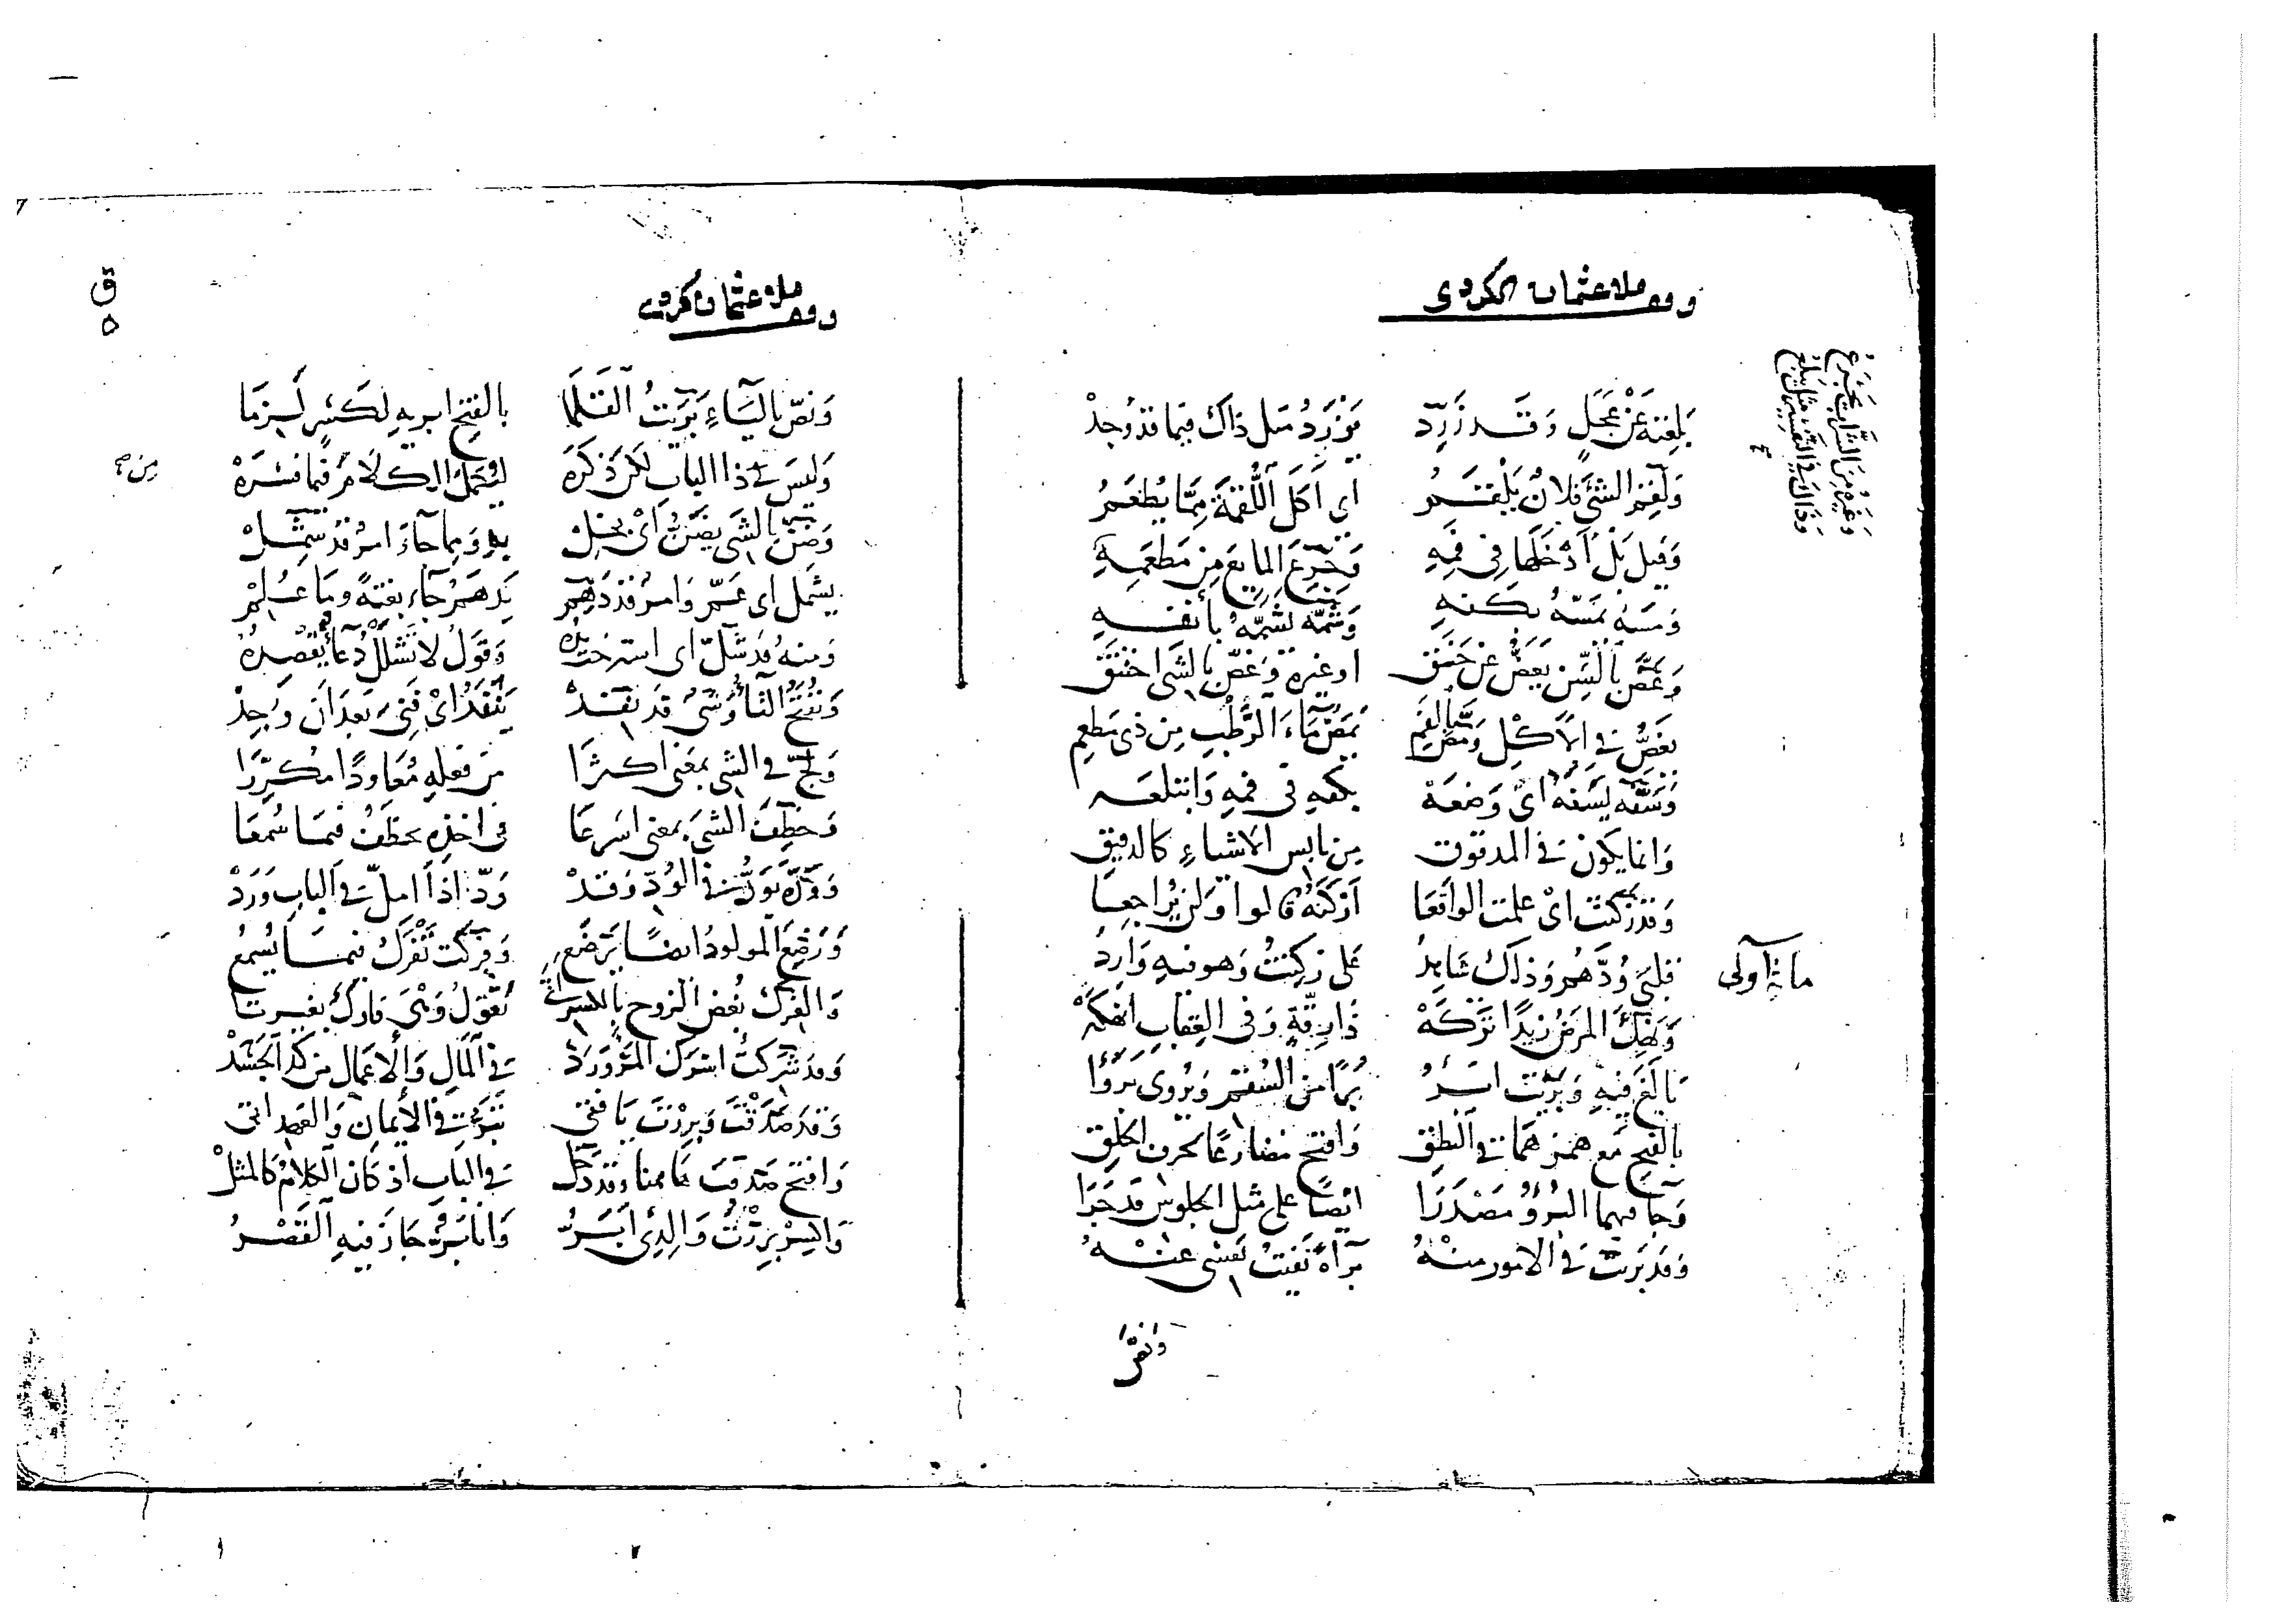 وقف ملا عثمان الكردي
بلعته عن عجل وقد زرد يزرد مثل ذاك فيما قد وجد
ولقم الشئ فلان يلقم اي اكل اللقمة مما يطعم
وقيل بل ادخلها في فمه وجرع المايع من مطعمه
ومسه يمسه بكفه وشمه يشمه بأنفه
وعض بالسن يعض عن حنق او غيره وغص بالشى اختنق
يغص في الاكل ومص بالفم يمص ماء الرطب من ذى مطعم
وسفه يسفه اى وضعه بكفه فى فمه وابتلعه
وانما يكون في المدقوق من يابس الاشياء كالدقيق
وقد زكنت اى علمت الواقعا ازكنه قالوا ولن يراجعا
قلبي ودهم وذاك شاهد على زكنت وهو فيه وارد
ونهك المرض زيدا تركه ذا رقة وفى العقاب انهكه
بالغ فيه وبريت ابرؤ برءا من السقم ويروى بروا
بالفتح مع همزهما في النطق وافتح مضارعا بحرف الحلق
وجا فيهما البرؤ مصدرا ايضا على مثل الجلوس قد جرا
وقد برئت في الامور منه براة نفيت نفسى عنه
وغيره من الشراب يجرع
وذاك في التفسير مثل يبلع
وقف ملا عثمان كردي
ق
٥
ونص بالياء بريت القلما بالفتح ابريه لكسر لزما
وليس في ذا الباب لكن ذكره ليكمل الكلام فيما فسره
وضن بالشى يضن اى بخل به ومما جاء امر قد شمل
يشمل اى عم وامر قد دهم يدهم جاء بغتة وما علم
ومنه قد شل اى استرخت يده وقول لا تشلل دعا يقصده
ونفتح التا وشى قد نفد ينفد اى فني بعد ان وجد
ولج في الشى بمعنى اكثرا من فعله معاودا مكررا
وخطف الشى بمعنى اسرعا فى اخذه يخطف فيما سمعا
وود يود في الود وقد ود اذا امل في الباب ورد
ورضع المولود ايضا يرضع وفركت تفرك فيما يسمع
والفرك بغض الزوج تقول وهى فارك بغير تا
وقد شركت اشرك المرء ورد في المال والاعمال من كد الجسد
وقد صدقت وبررت يا فتى تبر في الأيمان والعهد اتى
وافتح صدقت هاهنا وقد دخل في الباب اذ كان الكلام كالمثل
واكسر بررت والدي ابر وانا بر جاز فيه القصر